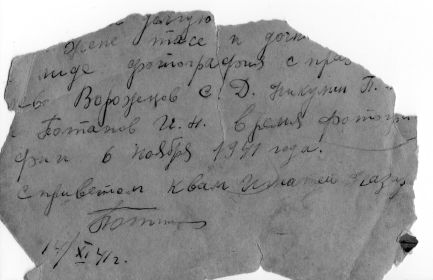 жене тасе и дочк
лиде фотография с пра
во Ворожцов С. Д. Никулин П.
Потапов И. Н. время фотогр
фии 6 ноября 1941 года.
с приветом к вам Игнатей
14/XI 41 г.